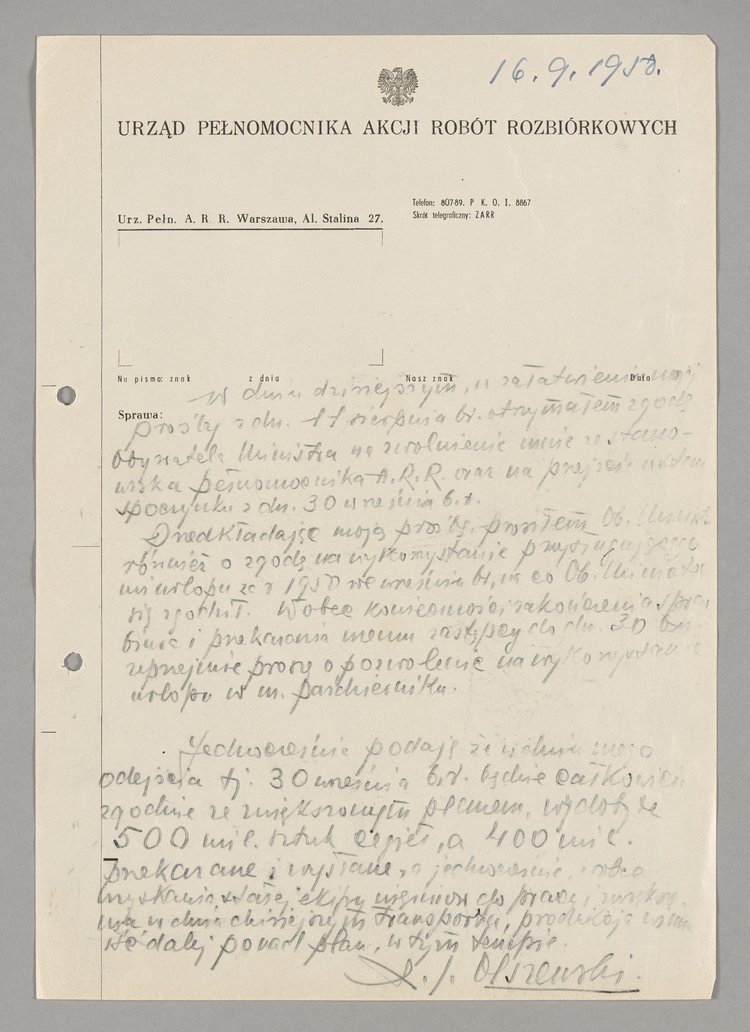 16.9.1950.
URZĄD PEŁNOMOCNIKA AKCJI ROBÓT ROZBIÓRKOWYCH
Telefon: 807-89. P K. O. I. 8867
Urz. Pełn. A. R. R. Warszawa, Al. Stalina 27.
Skrót telegraficzny: ZARR
Na pismo: znak z dnia Nasz znak Data
w dniu dzisiejszym, w załatwieniu mojej
Sprawa:
prośby z dn. 11 sierpnia br. otrzymałem zgodę
Obywatela Ministra na zwolnienie mnie ze stano-
wiska pełnomocnika A.R.R. oraz na przejście
spoczynku z dn. 30 września b.r.
Przedkładając moją prośbę, prosiłem Ob. Ministra
również o zgodę na wykorzystanie przysługującego
mi urlopu za r 1950 we wrześniu br, na co Ob. Minister
się zgodził. Wobec konieczności zakończenia
i przekazania memu zastępcy do dn. 30 bm.
uprzejmie proszę o pozwolenie na wykorzystanie
urlopu w m. październiku.
Jednocześnie podaję że w dniu mego
odejścia tj. 30 września b.r. będzie całkowicie
zgodnie ze zwiększonym planem, wydobyte
500 mil. sztuk cegieł, a 400 mil.
przekazane i wysłane, a jednocześnie, wobec
uzyskania stałej ekipy więźniów do pracy i
w dniu dzisiejszym transportu, produkcja
dalej ponad plan, w tym tempie.
Olszewski.